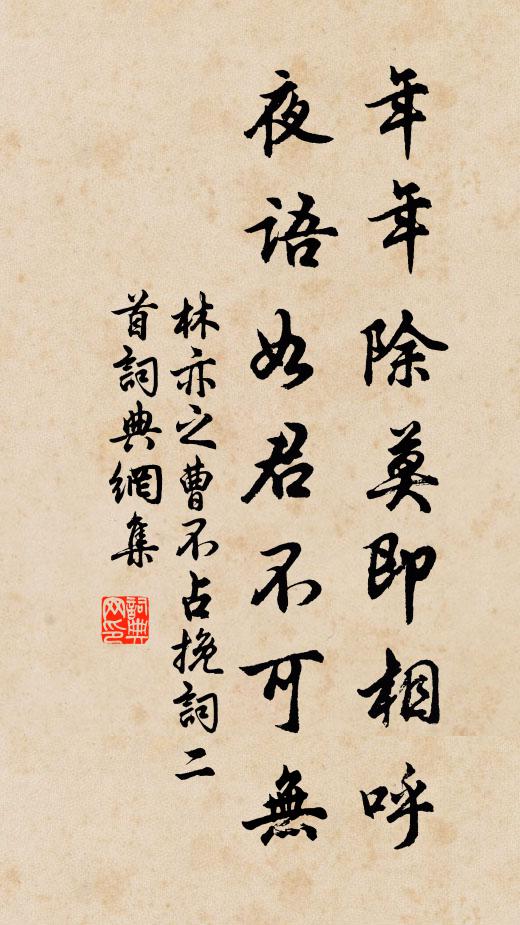 年年除莫即相呼
夜語如君不可無
林亦之曹不占挽詞二
首詞典網集
詞典
网印